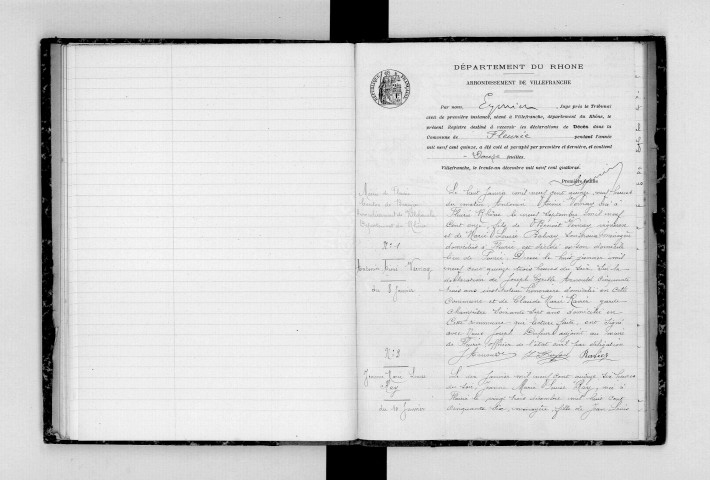 DÉPARTEMENT DU RHONE
ARRONDISSEMENT DE VILLEFRANCHE
RÉPUBLIQUE FRANÇAISE
Par nous, Juge près le Tribunal
civil de première instance, séant à Villefranche, département du Rhône, le
présent Registre destiné à recevoir les déclarations de Décès dans la
Commune de Fleurie pendant l'année
mil neuf cent quinze, a été coté et paraphé par première et dernière, et contient
feuilles.
Villefranche, le trente-un décembre mil neuf cent quatorze.
Première feuille
Mairie de Fleurie
Canton de Beaujeu
Arrondissement de Villefranche
Département du Rhône
N° 1
du 8 Janvier
Le huit janvier mil neuf cent quinze, huit heures
du matin, Antonin Marie né à
Fleurie Rhône, le neuf septembre mil neuf
cent onze, fils de Benoit vigneron
et de Marie Louise
domiciliés à Fleurie, est décédé en son domicile
lieu de Dressé le huit janvier mil
neuf cent quinze, trois heures du soir, sur la
déclaration de Joseph
trois ans, instituteur honoraire domicilié en cette
commune et de Claude Marie Ravier, garde
champêtre, soixante sept ans, domicilié en
cette commune qui, lecture faite, ont signé
avec Nous, Joseph adjoint au maire
de Fleurie officier de l'état civil par délégation
Ravier
N° 2
Jeanne Marie Louise
Rey
du 10 Janvier
Le dix janvier mil neuf cent quinze, six heures
du soir, Jeanne Marie Louise Rey, née à
Fleurie le vingt trois décembre mil huit cent
cinquante six, ménagère, fille de Jean Louis